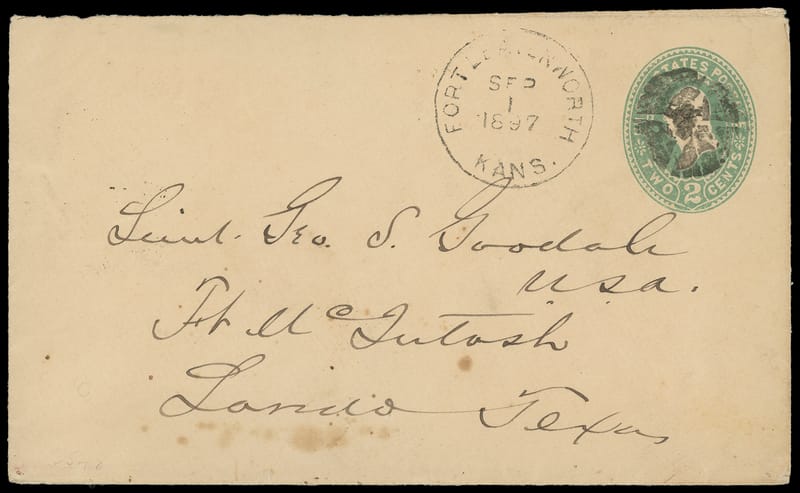 FORT LEAVENWORTH
SEP
1
1897
KANS.
STATES PO
TWO 2 CENTS
Lieut. Geo. S. Goodale
U.S.A.
Ft McIntosh
Laredo Texas